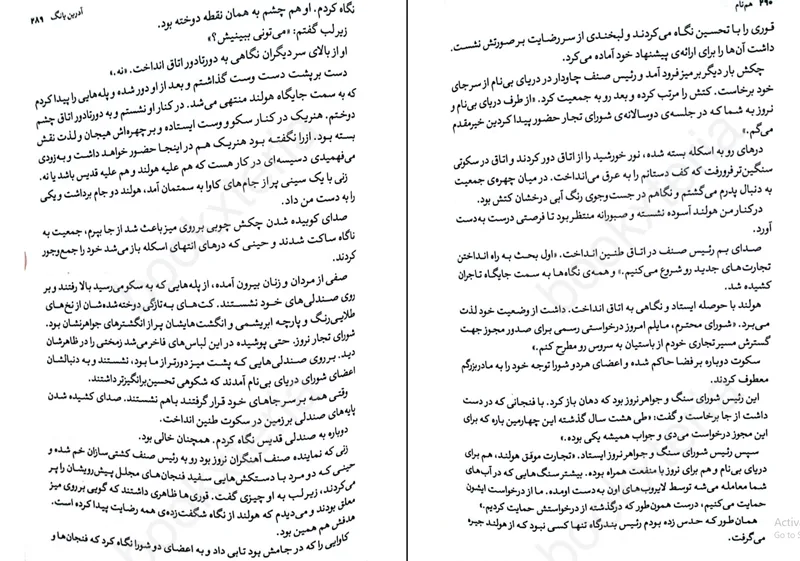 آدرین یانگ ۲۸۹
نگاه کردم. او هم چشم به همان نقطه دوخته بود.
زیر لب گفتم: «می‌تونی ببینیش؟»
او از بالای سر دیگران نگاهی به دورتادور اتاق انداخت. «نه.»
دست بر پشت دست وست گذاشتم و بعد از او دور شده و پله‌هایی را پیدا کردم
که به سمت جایگاه هولند منتهی می‌شد. در کنار او نشستم و به دورتادور اتاق چشم
دوختم. هنریک در کنار سکو و وست ایستاده و بر چهره‌اش هیجان و لذت نقش
بسته بود. ازرا نگفته بود هنریک هم در اینجا حضور خواهد داشت و به‌زودی
می‌فهمیدی دسیسه‌ای در کار هست که هم علیه هولند و هم علیه قدیس باشد یا نه.
زنی با یک سینی پر از جام‌های کاوا به سمتمان آمد، هولند دو جام برداشت و یکی
را به دست من داد.
صدای کوبیده شدن چکش چوبی بر روی میز باعث شد از جا بپرم، جمعیت به
ناگاه ساکت شدند و حینی که درهای انتهای اسکله باز می‌شد خود را جمع‌وجور
کردند.
صفی از مردان و زنان بیرون آمده، از پله‌هایی که به سکو می‌رسید بالا رفتند و بر
روی صندلی‌های خود نشستند. کت‌های به‌تازگی دوخته‌شده‌شان از نخ‌های
طلایی‌رنگ و پارچه ابریشمی و انگشت‌هایشان پر از انگشترهای جواهرنشان بود.
شورای تجار نروز. حتی پوشیده در این لباس‌های فاخر می‌شد زمختی را در ظاهرشان
دید. بر روی صندلی‌هایی که پشت میز دورتر از ما بود، نشستند و به دنبالشان
اعضای شورای دریای بی‌نام آمدند که شکوهی تحسین‌برانگیزتر داشتند.
وقتی همه بر سر جاهای خود قرار گرفتند باهم نشستند. صدای کشیده شدن
پایه‌های صندلی بر زمین در سکوت طنین انداخت.
دوباره به صندلی قدیس نگاه کردم. همچنان خالی بود.
زنی که نماینده صنف آهنگران نروز بود رو به رئیس صنف کشتی‌سازان خم شده و
حینی که دو مرد با دستکش‌هایی سفید فنجان‌های مجلل پیش‌رویشان را پر
می‌کردند، زیر لب به او چیزی گفت. قوری‌ها ظاهری داشتند که گویی بر روی میز
معلق بودند و می‌دیدم که هولند از نگاه شگفت‌زده‌ی همه رضایت پیدا کرده است.
هدفش هم همین بود.
کاوایی را که در جامش بود تابی داد و به اعضای دو شورا نگاه کرد که فنجان‌ها و
۲۹۰ هم‌نام
قوری را با تحسین نگاه می‌کردند و لبخندی از سر رضایت بر صورتش نشست.
داشت آن‌ها را برای ارائه‌ی پیشنهاد خود آماده می‌کرد.
چکش بار دیگر بر میز فرود آمد و رئیس صنف چاودار در دریای بی‌نام از سر جای
خود برخاست. کتش را مرتب کرده و بعد رو به جمعیت کرد. «از طرف دریای بی‌نام و
نروز به شما که در جلسه‌ی دوسالانه‌ی شورای تجار حضور پیدا کردین خیرمقدم
می‌گم.»
درهای رو به اسکله بسته شده، نور خورشید را از اتاق دور کردند و اتاق در سکوتی
سنگین‌تر فرورفت که کف دستانم را به عرق می‌انداخت. در میان چهره‌ی جمعیت
به دنبال پدرم می‌گشتم و نگاهم در جست‌وجوی رنگ آبی درخشان کتش بود.
در کنار من هولند آسوده نشسته و صبورانه منتظر بود تا فرصتی درست به دست
آورد.
صدای بم رئیس صنف در اتاق طنین انداخت. «اول بحث به راه انداختن
تجارت‌های جدید رو شروع می‌کنیم.» و همه‌ی نگاه‌ها به سمت جایگاه تاجران
کشیده شد.
هولند با حوصله ایستاد و نگاهی به اتاق انداخت. داشت از وضعیت خود لذت
می‌برد. «شورای محترم، مایلم امروز درخواستی رسمی برای صدور مجوز جهت
گسترش مسیر تجاری خودم از باستیان به سروس رو مطرح کنم.»
سکوت دوباره بر فضا حاکم شده و اعضای هر دو شورا توجه خود را به مادربزرگم
معطوف کردند.
این رئیس شورای سنگ و جواهر نروز بود که دهان باز کرد. با فنجانی که در دست
داشت از جا برخاست و گفت: «طی هشت سال گذشته این چهارمین باره که برای
این مجوز درخواست می‌دی و جواب همیشه یکی بوده.»
سپس رئیس شورای سنگ و جواهر نروز ایستاد. «تجارت موفق هولند، هم برای
دریای بی‌نام و هم برای نروز با منفعت همراه بوده. بیشتر سنگ‌هایی که در آب‌های
شما معامله می‌شه توسط لایروب‌های اون به‌دست اومده. ما از درخواست ایشون
حمایت می‌کنیم، درست همون‌طور که درگذشته از درخواستش حمایت کردیم.»
همان طور که حدس زده بودم رئیس بندرگاه تنها کسی نبود که از هولند جیره
می‌گرفت.